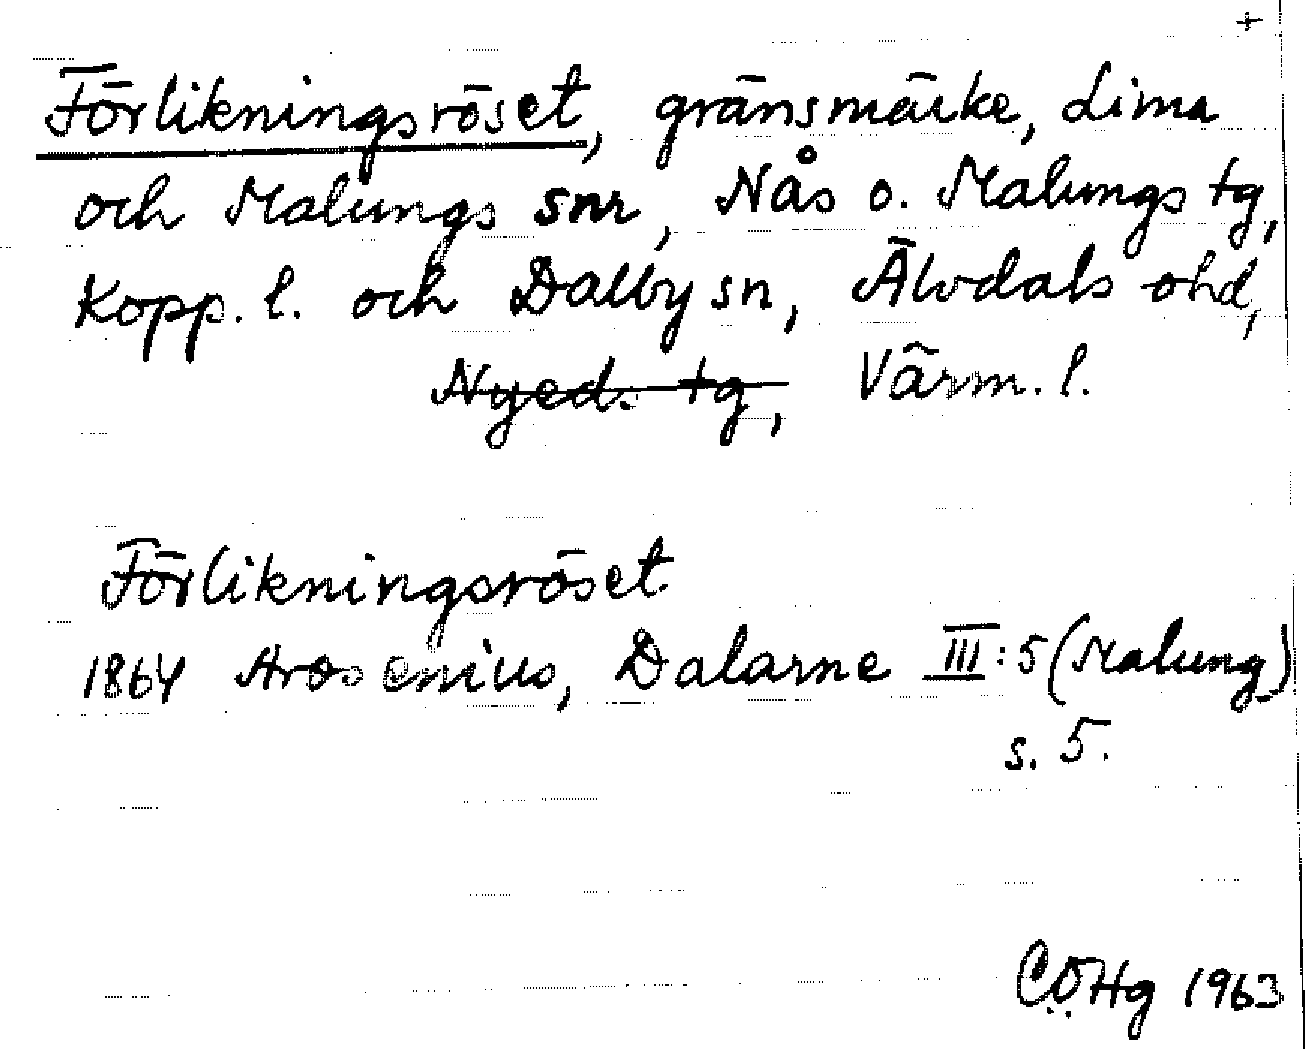 +
Förlikningsröset, gränsmärke, Lima
och Malungs snr, Nås o. Malungs tg,
Kopp. l. och Dalby sn, Älvdals ohd,
Nyed. tg, Värm. l.
Förlikningsröset
1864 Arosenius, Dalarne III:5 (Malung)
s. 5.
CÖHg 1963